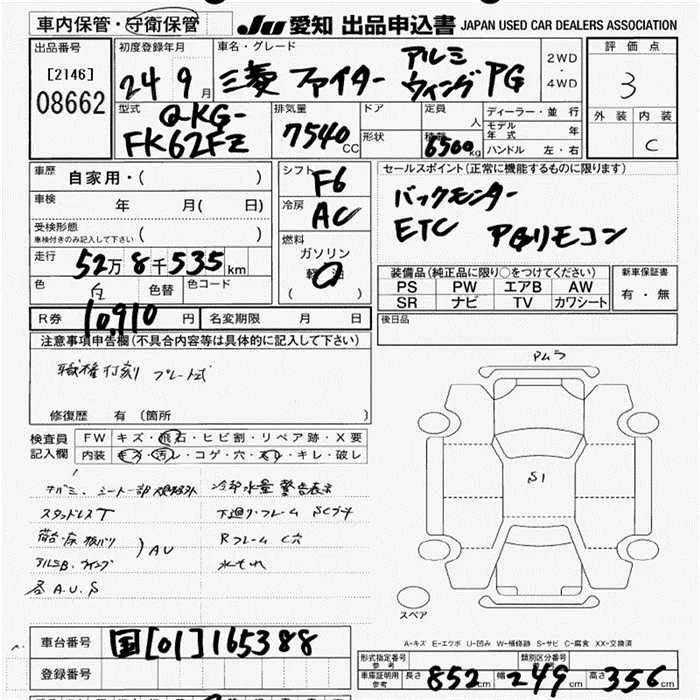 車内保管・守衛保管 JU 愛知 出品申込書 JAPAN USED CAR DEALERS ASSOCIATION
出品番号 [2146] 08662
初度登録年月 24年 9月
車名・グレード 三菱 ファイター アルミウィング PG
2WD・4WD
評価点 3
外装 内装 C
型式 QKG-FK62FZ
排気量 7540CC
ドア
形状
定員 人
積載 6500kg
ディーラー・並行
モデル年式 年
ハンドル 左・右
車歴 自家用・( )
車検 年 月( 日)
受検形態
車検付きのみ記入して下さい ( )
走行 52万8千535km
色 白 色替 色コード
シフト F6
冷房 AC
燃料 ガソリン 軽油
( )
セールスポイント(正常に機能するものに限ります)
バックモニター
ETC PGリモコン
装備品(純正品に限り○をつけてください)
PS PW エアB AW
SR ナビ TV カワシート
新車保証書
有・無
R券 10,910円 名変期限 月 日
後日品
注意事項申告欄(不具合内容等は具体的に記入して下さい)
職権打刻 プレート式
修復歴 有(箇所 )
検査員記入欄
FW キズ・飛石・ヒビ割・リペア跡・X要
内装 キズ・汚レ・コゲ・穴・スレ・キレ・破レ
冷却水量 警告表示
スタッドレスT 下廻り・フレーム SCサ
荷台・床 板バリ )AU Rフレーム C穴
アルミB.ウイング 水もれ
各A.U.S
PMラ
S1
スペア
A-キズ E-エクボ U-凹み W-補修跡 S-サビ C-腐食 XX-交換済
車台番号 国[01]165388
登録番号
形式指定番号 参考
類別区分番号 参考
車庫証明用 参考 長さ 852cm 幅 249cm 高さ 356cm